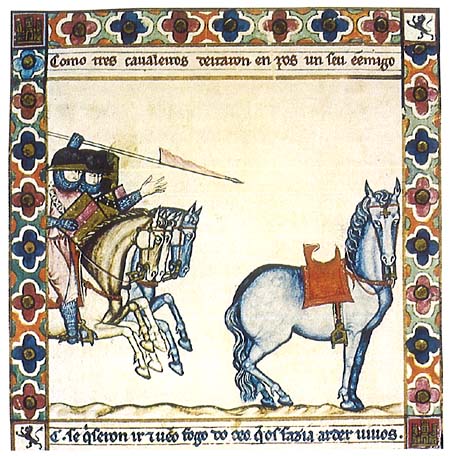 Como tres caualeiros deitaron en pos un seu eẽmigo
C. se q̃seron ir ⁊ uẽo fogo do ceo q̃ os fazia arder uiuos.